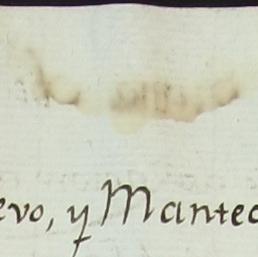 evo, y Mantec